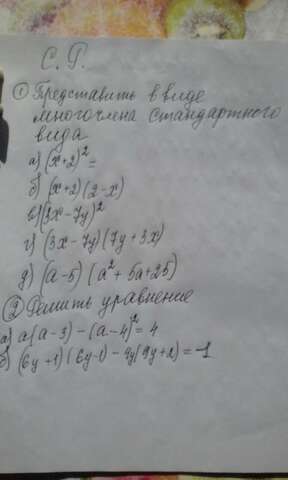 С. Р.
① Представить в виде
многочлена стандартного
вида
а) (x+2)² =
б) (x+2)(2-x)
в) (3x-7y)²
г) (3x-7y)(7y+3x)
д) (a-5)(a²+5a+25)
② Решить уравнение
а) a(a-3)-(a-4)²=4
б) (6y+1)(6y-1)-4y(9y+2)=-1